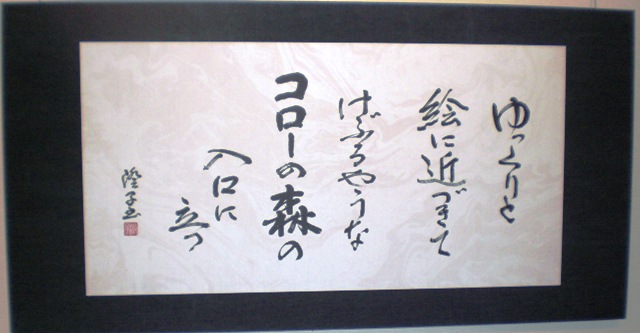 ゆっくりと
絵に近づきて
けぶるやうな
コローの森の
入口に
立つ
隆子書